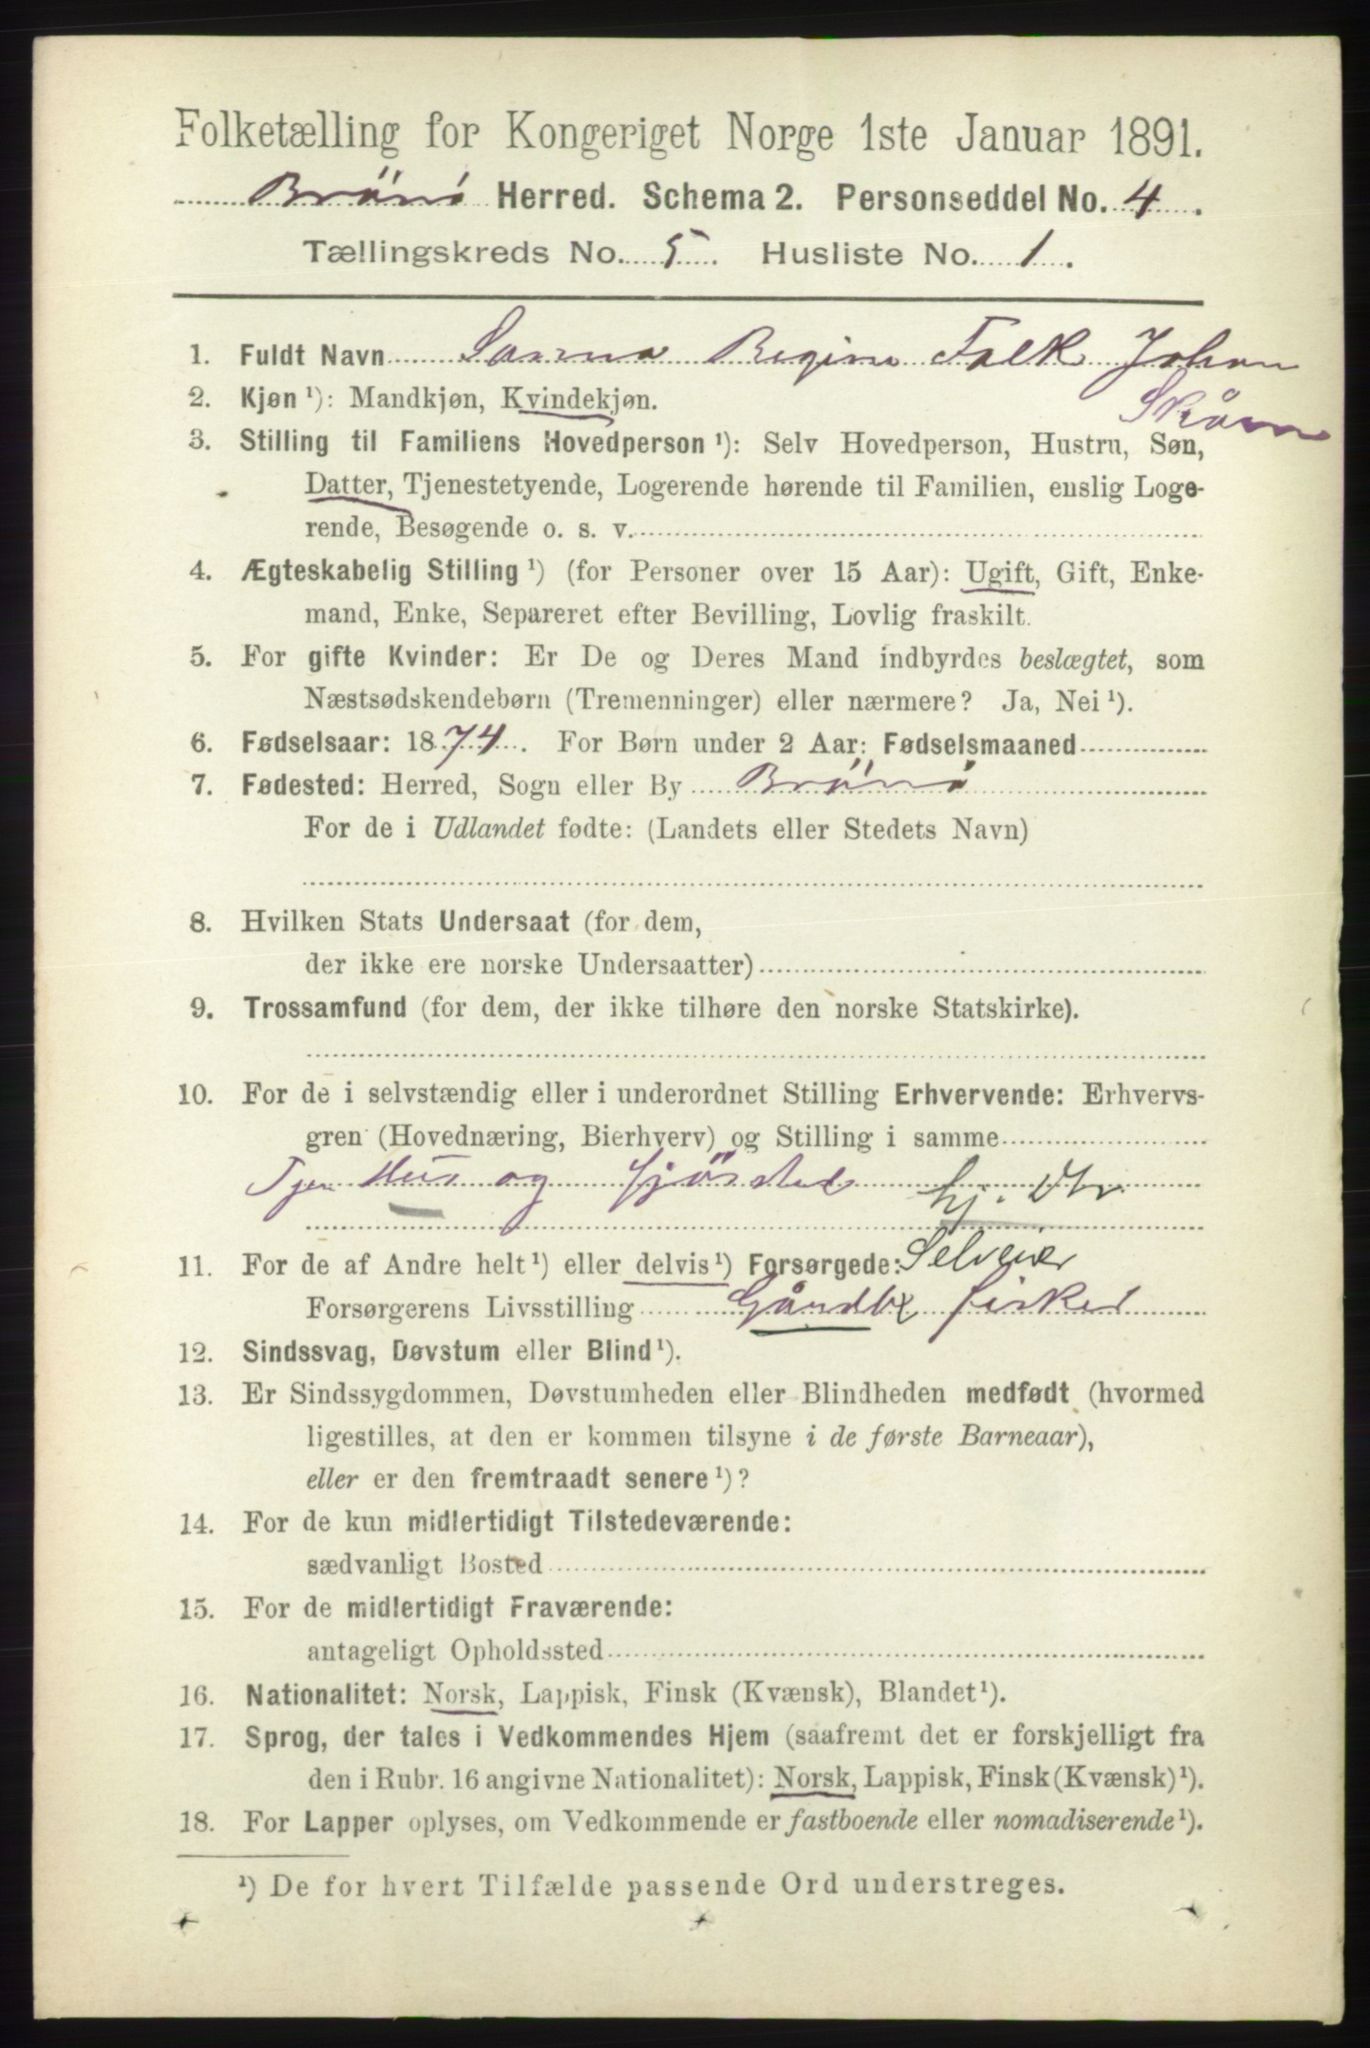 Folketælling for Kongeriget Norge 1ste Januar 1891.
Brönö Herred. Schema 2. Personseddel No. 4.
Tællingskreds No. 5. Husliste No. 1.
1. Fuldt Navn Sanna Regine Falk Johan
Skåvn
2. Kjøn ¹): Mandkjøn, Kvindekjøn.
3. Stilling til Familiens Hovedperson ¹): Selv Hovedperson, Hustru, Søn,
Datter, Tjenestetyende, Logerende hørende til Familien, enslig Loge-
rende, Besøgende o. s. v.
4. Ægteskabelig Stilling ¹) (for Personer over 15 Aar): Ugift, Gift, Enke-
mand, Enke, Separeret efter Bevilling, Lovlig fraskilt.
5. For gifte Kvinder: Er De og Deres Mand indbyrdes beslægtet, som
Næstsødskendebørn (Tremenninger) eller nærmere? Ja, Nei ¹).
6. Fødselsaar: 1874. For Børn under 2 Aar: Fødselsmaaned
7. Fødested: Herred, Sogn eller By Brönö
For de i Udlandet fødte: (Landets eller Stedets Navn)
8. Hvilken Stats Undersaat (for dem,
der ikke ere norske Undersaatter)
9. Trossamfund (for dem, der ikke tilhøre den norske Statskirke).
10. For de i selvstændig eller i underordnet Stilling Erhvervende: Erhvervs-
gren (Hovednæring, Bierhverv) og Stilling i samme
Hus og fjösstel hj. Dtr
11. For de af Andre helt ¹) eller delvis ¹) Forsørgede: Selveier
Forsørgerens Livsstilling Gårdb fisker
12. Sindssvag, Døvstum eller Blind ¹).
13. Er Sindssygdommen, Døvstumheden eller Blindheden medfødt (hvormed
ligestilles, at den er kommen tilsyne i de første Barneaar),
eller er den fremtraadt senere ¹)?
14. For de kun midlertidigt Tilstedeværende:
sædvanligt Bosted
15. For de midlertidigt Fraværende:
antageligt Opholdssted
16. Nationalitet: Norsk, Lappisk, Finsk (Kvænsk), Blandet ¹).
17. Sprog, der tales i Vedkommendes Hjem (saafremt det er forskjelligt fra
den i Rubr. 16 angivne Nationalitet): Norsk, Lappisk, Finsk (Kvænsk) ¹).
18. For Lapper oplyses, om Vedkommende er fastboende eller nomadiserende ¹).
¹) De for hvert Tilfælde passende Ord understreges.